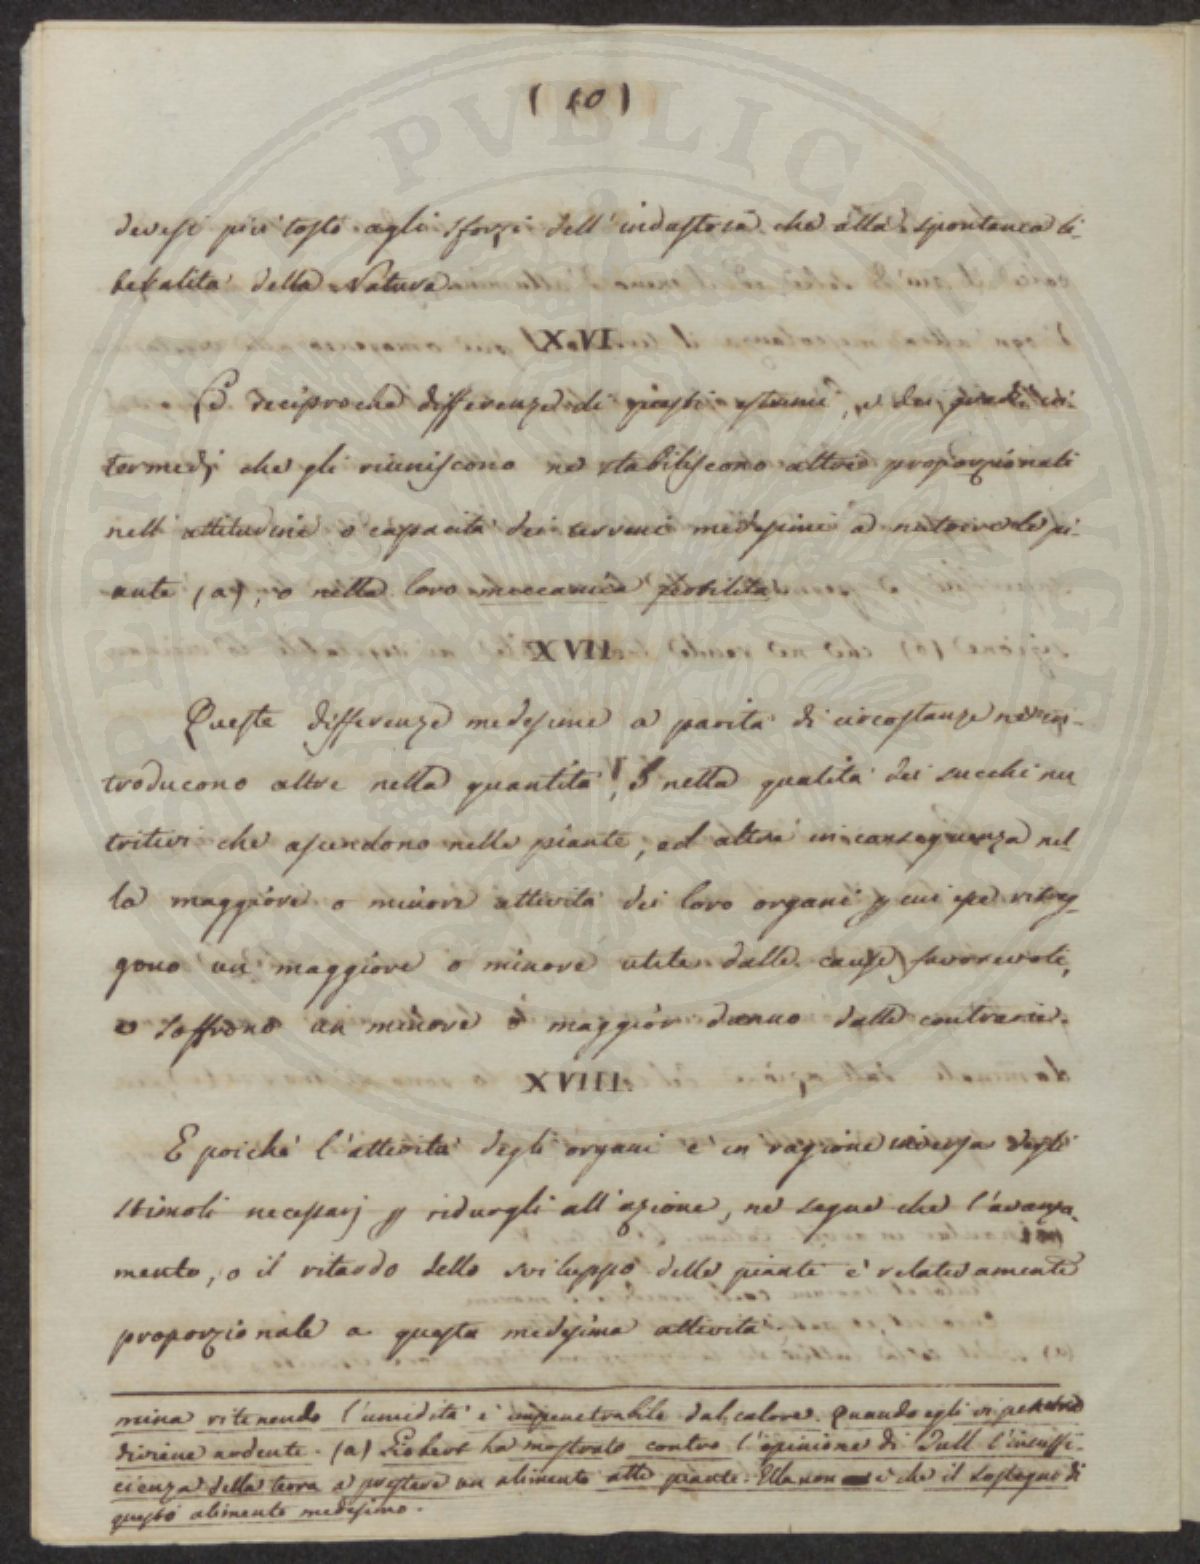 ( 10 )
devesi più tosto agli sforzi dell'industria che alla spontanea li-
beralità della Natura
XVI.
Le reciproche differenze di questi estremi, e dei gradi in-
termedj che gli riuniscono ne stabiliscono altre proporzionali
nell'attitudine o capacità dei terreni medesimi a nutrire le pi-
ante (a), o nella loro meccanica fertilità
XVII.
Queste differenze medesime a parità di circostanze ne in-
troducono altre nella quantità, e nella qualità dei succhi nu
tritivi che ascendono nelle piante, ed altre in conseguenza nel-
la maggiore o minore attività dei loro organi p cui esse ritrag-
gono un maggiore o minore utile dalle cause favorevoli,
e soffrono un minore o maggior danno dalle contrarie.
XVIII.
E poichè l'attività degli organi è in ragione inversa degli
stimoli necessarj p ridurgli all'azione, ne segue che l'avanza-
mento, o il ritardo dello sviluppo delle piante è relativamente
proporzionale a questa medesima attività
mina ritenendo l'umidità è impenetrabile dal calore. Quando egli vi penetra
diviene ardente. (a) Giobert ha mostrato contro l'opinione di Tull l'insuffi-
cienza della terra a prestare un alimento alle piante. Ella non è che il sostegno di
questo alimento medesimo.